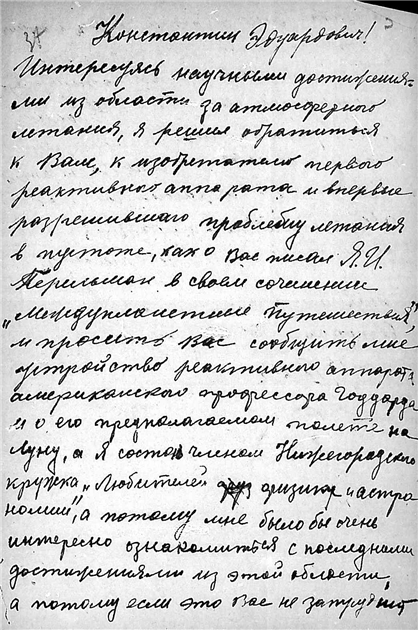 34
Константин Эдуардович!
Интересуясь научными достижения-
ми из области за атмосферного
летания, я решил обратиться
к Вам, к изобретателю первого
реактивного аппарата и впервые
разрешившаго проблему летания
в пустоте, как о Вас писал Я.И.
Перельман в своем сочинении
„Междупланетные путешествия",
и просить Вас сообщить мне
устройство реактивного аппарата
американского профессора Годдарда
и о его предполагаемом полете на
Луну, а я состою членом Нижегородского
кружка „Любителей физики и астро
номии", а потому мне было бы очень
интересно ознакомиться с последними
достижениями из этой области,
а потому если это Вас не затруднит